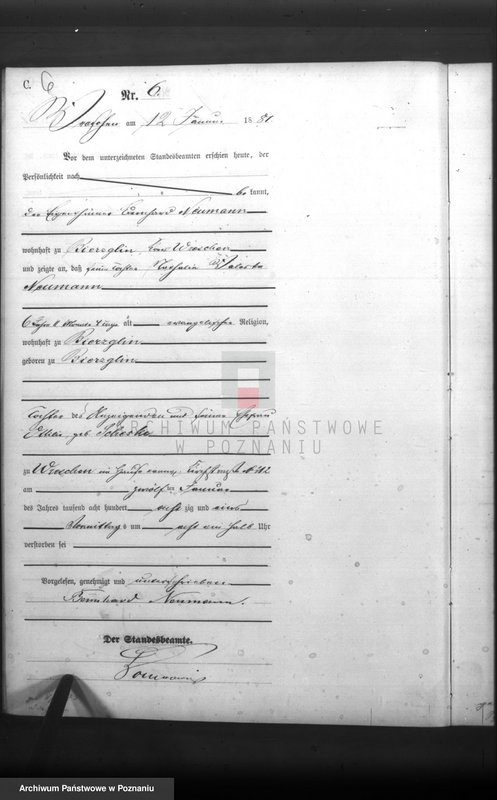 C. 6
Nr. 6.
Wreschen am 12 Januar 1881.
Vor dem unterzeichneten Standesbeamten erschien heute, der
Persönlichkeit nach
be kannt,
der Eigenthümer Bernhard Neumann
wohnhaft zu Bierzglin, bei Wreschen
und zeigte an, daß seine Tochter Nathalie Valeska
Neumann
6 Jahre 8 Monate 4 Tage alt evangelischer Religion,
wohnhaft zu Bierzglin
geboren zu Bierzglin
ARCHIWUM PAŃSTWOWE
W POZNANIU
Tochter des Anzeigenden und seiner Ehefrau
geb
zu Wreschen im Hause No 112
am zwölften Januar
des Jahres tausend acht hundert acht zig und eins
Vormittags um acht ein halb Uhr
verstorben sei
Vorgelesen, genehmigt und unterschrieben
Bernhard Neumann.
Der Standesbeamte.
Archiwum Państwowe w Poznaniu